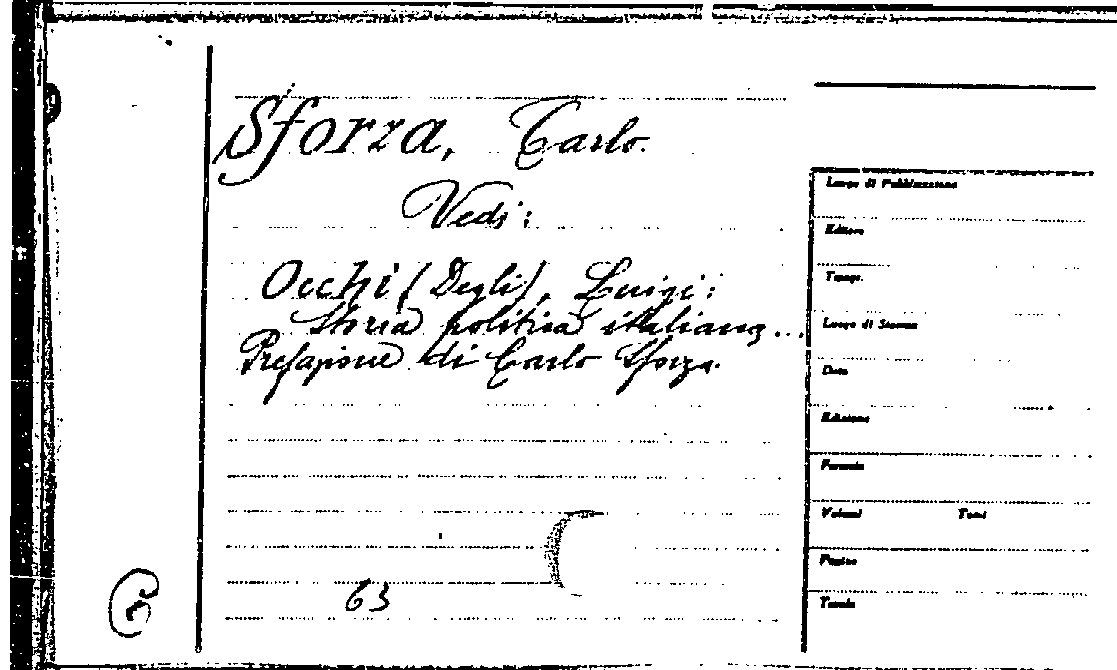 Sforza, Carlo.
Vedi:
Occhi (Degli), Luigi:
Storia politica italiana...
Prefazione di Carlo Sforza.
63
Luogo di Pubblicazione
Editore
Tipogr.
Luogo di Stampa
Data
Edizione
Formato
Volumi Tomi
Pagine
Tavole